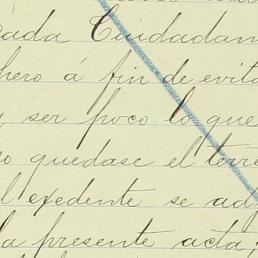 cada Ciudadan
hero á fin de evita
ser poco lo que
quedase el terre
l exedente se ad
la presente acta;